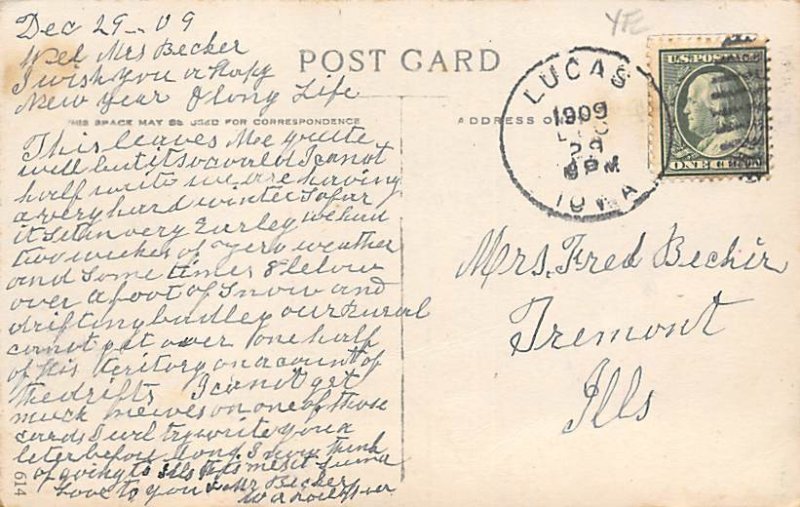 Dec 29 - 09
Wel Mrs Becker
I wish you a Hapy
New Year & long Life
POST CARD
THIS SPACE MAY BE USED FOR CORRESPONDENCE
This leaves Me quite
well but it so cold I canot
half write we are having
a very hard winter so far
it set in very Earley we had
two weekes of zero weather
and some times 8 below
over a foot of snow and
drifting badley our Rural
canot get over one half
of his teritory on acount of
the drifts I canot get
much newes on one of those
cards I wil try write you a
leter before long I now think
of going to Ills
love to you & Mr Becker
614
ADDRESS ONLY
YFE
LUCAS
1909
DEC
29
PM
IOWA
U.S. POSTAGE
ONE CENT
Mrs. Fred Becker
Tremont
Ills